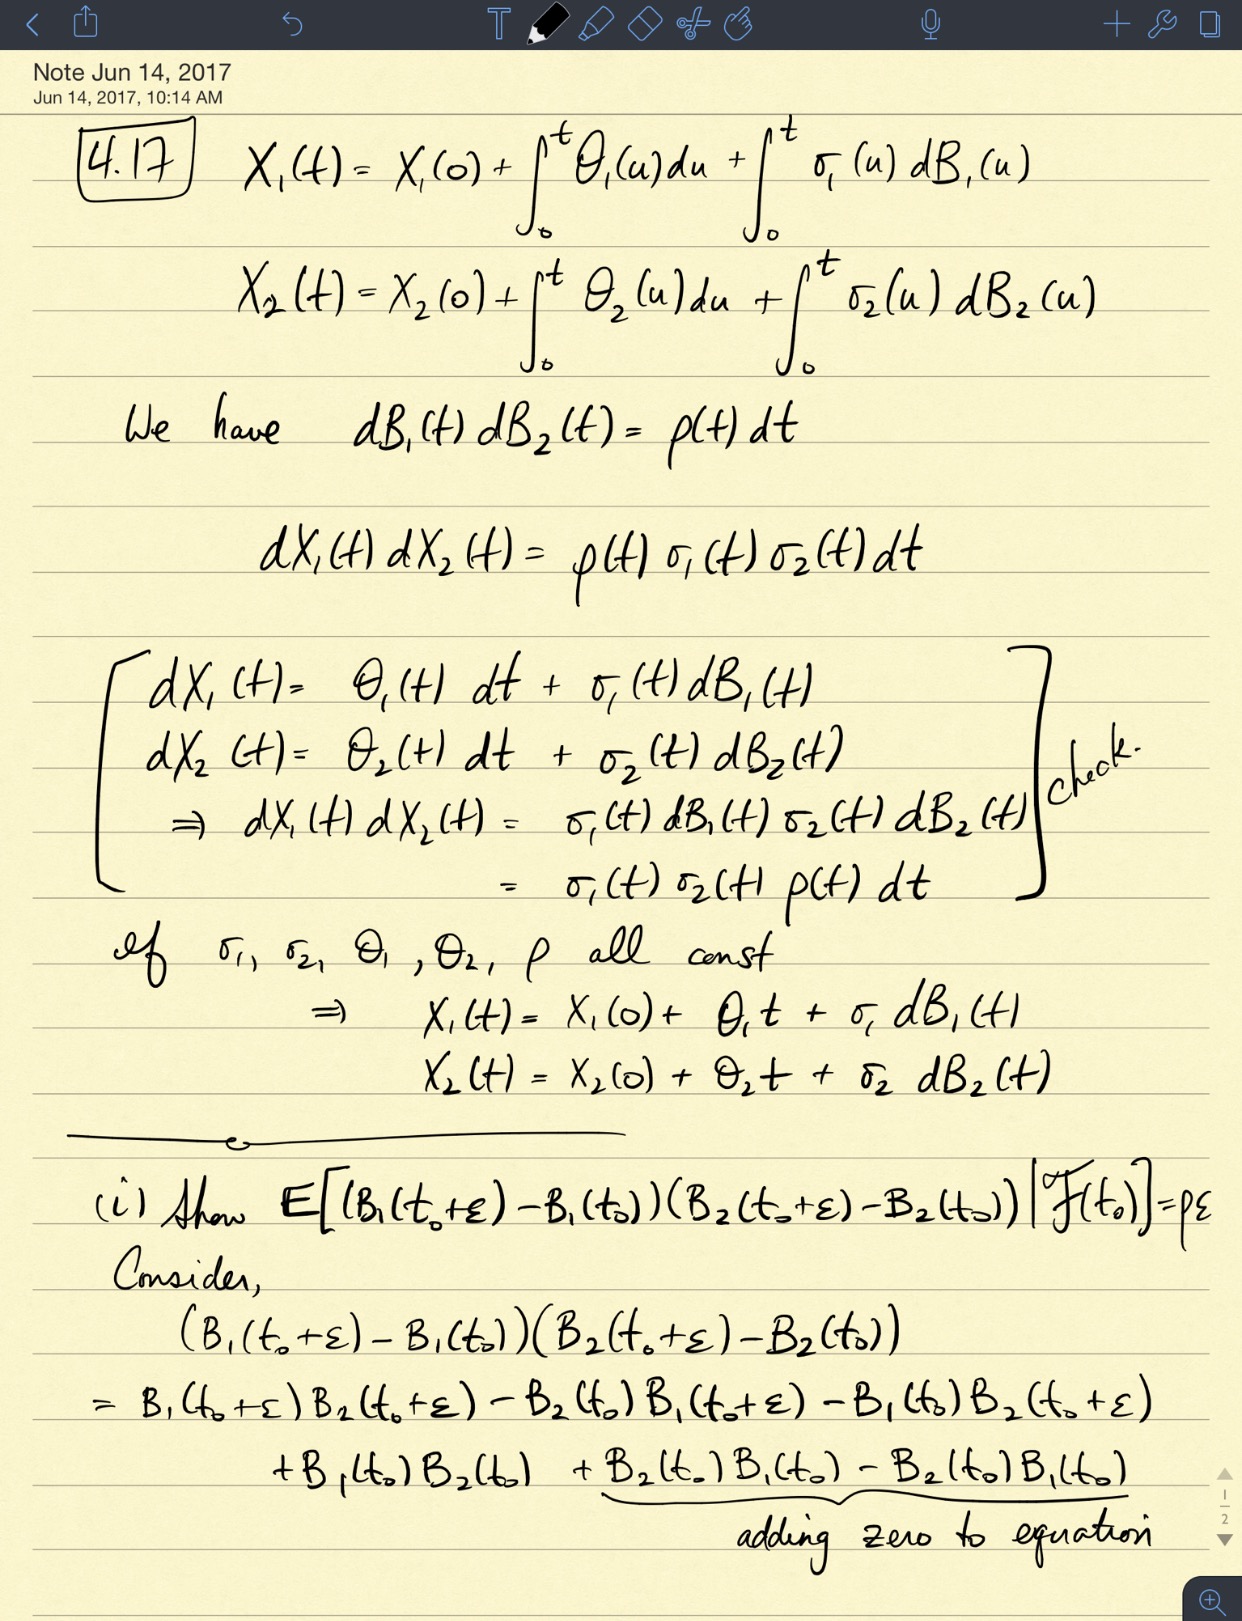 Note Jun 14, 2017
Jun 14, 2017, 10:14 AM
4.17 X₁(t) = X₁(0) + ∫₀ᵗ θ₁(u)du + ∫₀ᵗ σ₁(u) dB₁(u)
X₂(t) = X₂(0) + ∫₀ᵗ θ₂(u)du + ∫₀ᵗ σ₂(u) dB₂(u)
We have dB₁(t) dB₂(t) = ρ(t) dt
dX₁(t) dX₂(t) = ρ(t) σ₁(t) σ₂(t) dt
[dX₁(t) = θ₁(t) dt + σ₁(t) dB₁(t)
dX₂(t) = θ₂(t) dt + σ₂(t) dB₂(t)
⇒ dX₁(t) dX₂(t) = σ₁(t) dB₁(t) σ₂(t) dB₂(t)
= σ₁(t) σ₂(t) ρ(t) dt] check.
If σ₁, σ₂, θ₁, θ₂, ρ all const
⇒ X₁(t) = X₁(0) + θ₁t + σ₁ dB₁(t)
X₂(t) = X₂(0) + θ₂t + σ₂ dB₂(t)
(i) Show E[(B₁(t₀+ε) − B₁(t₀))(B₂(t₀+ε) − B₂(t₀)) | ℱ(t₀)] = ρε
Consider,
(B₁(t₀+ε) − B₁(t₀))(B₂(t₀+ε) − B₂(t₀))
= B₁(t₀+ε)B₂(t₀+ε) − B₂(t₀)B₁(t₀+ε) − B₁(t₀)B₂(t₀+ε)
+ B₁(t₀)B₂(t₀) + B₂(t₀)B₁(t₀) − B₂(t₀)B₁(t₀)
adding zero to equation
1
2